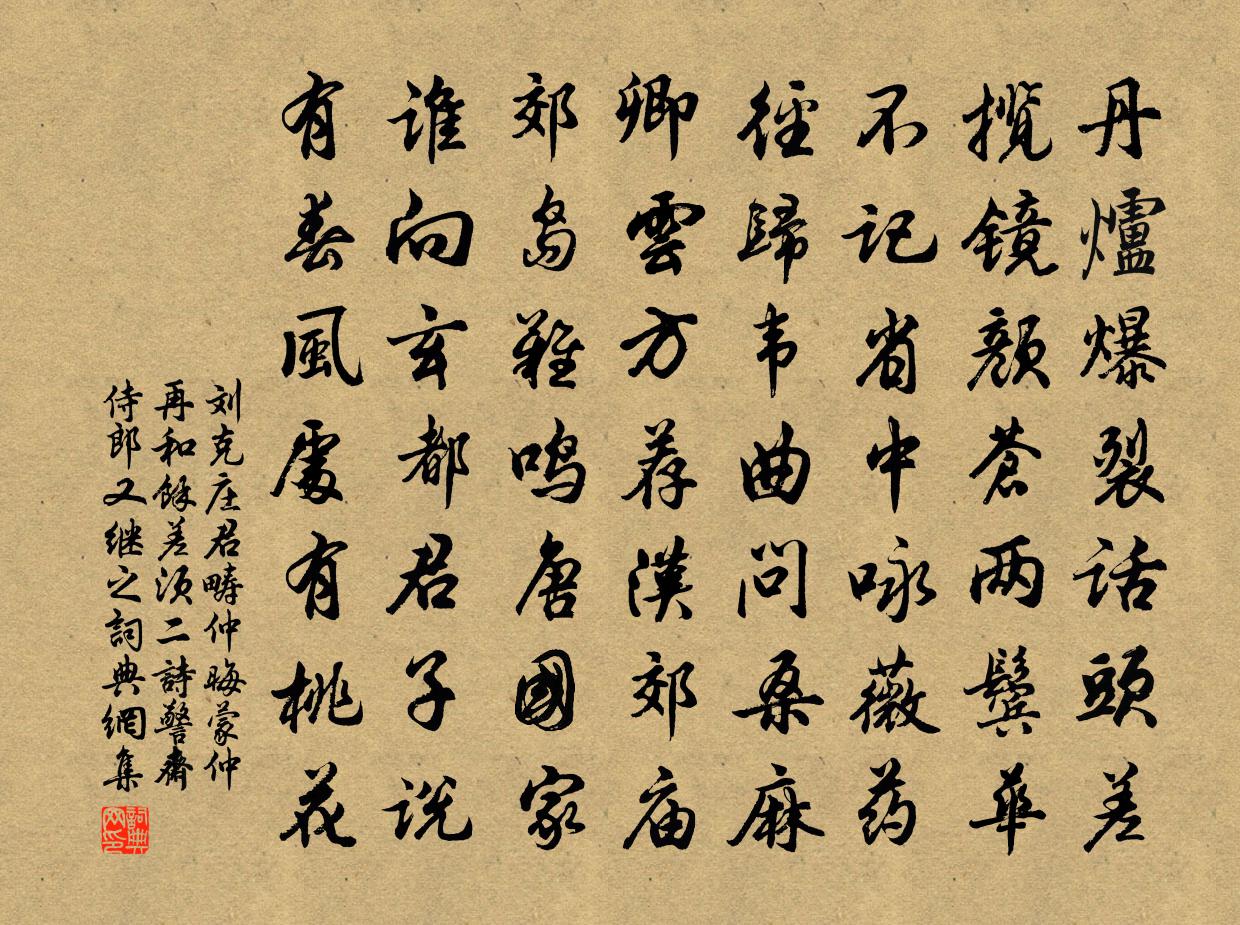 丹爐爆裂話頭差
攬镜顔蒼兩鬓華
不记省中咏薇药
徑歸韦曲问桑麻
卿雲方荐漢郊庙
郊島難鸣唐國家
谁向玄都君子说
有春風處有桃花
刘克庄君畴仲晦蒙仲
再和餘差须二詩警齋
侍郎又继之詞典網集
詞典网印